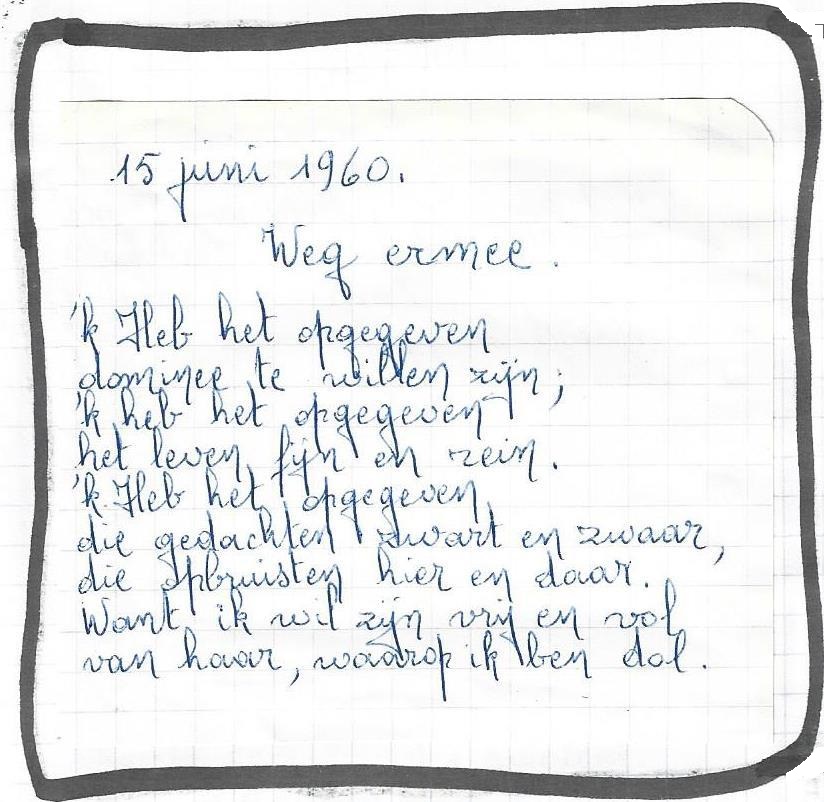 15 juni 1960.
Weg ermee.
'k Heb het opgegeven
dominee te willen zijn;
'k heb het opgegeven
het leven, fijn en rein.
'k Heb het opgegeven,
die gedachten zwart en zwaar,
die opbruisten hier en daar.
Want ik wil zijn vrij en vol
van haar, waarop ik ben dol.